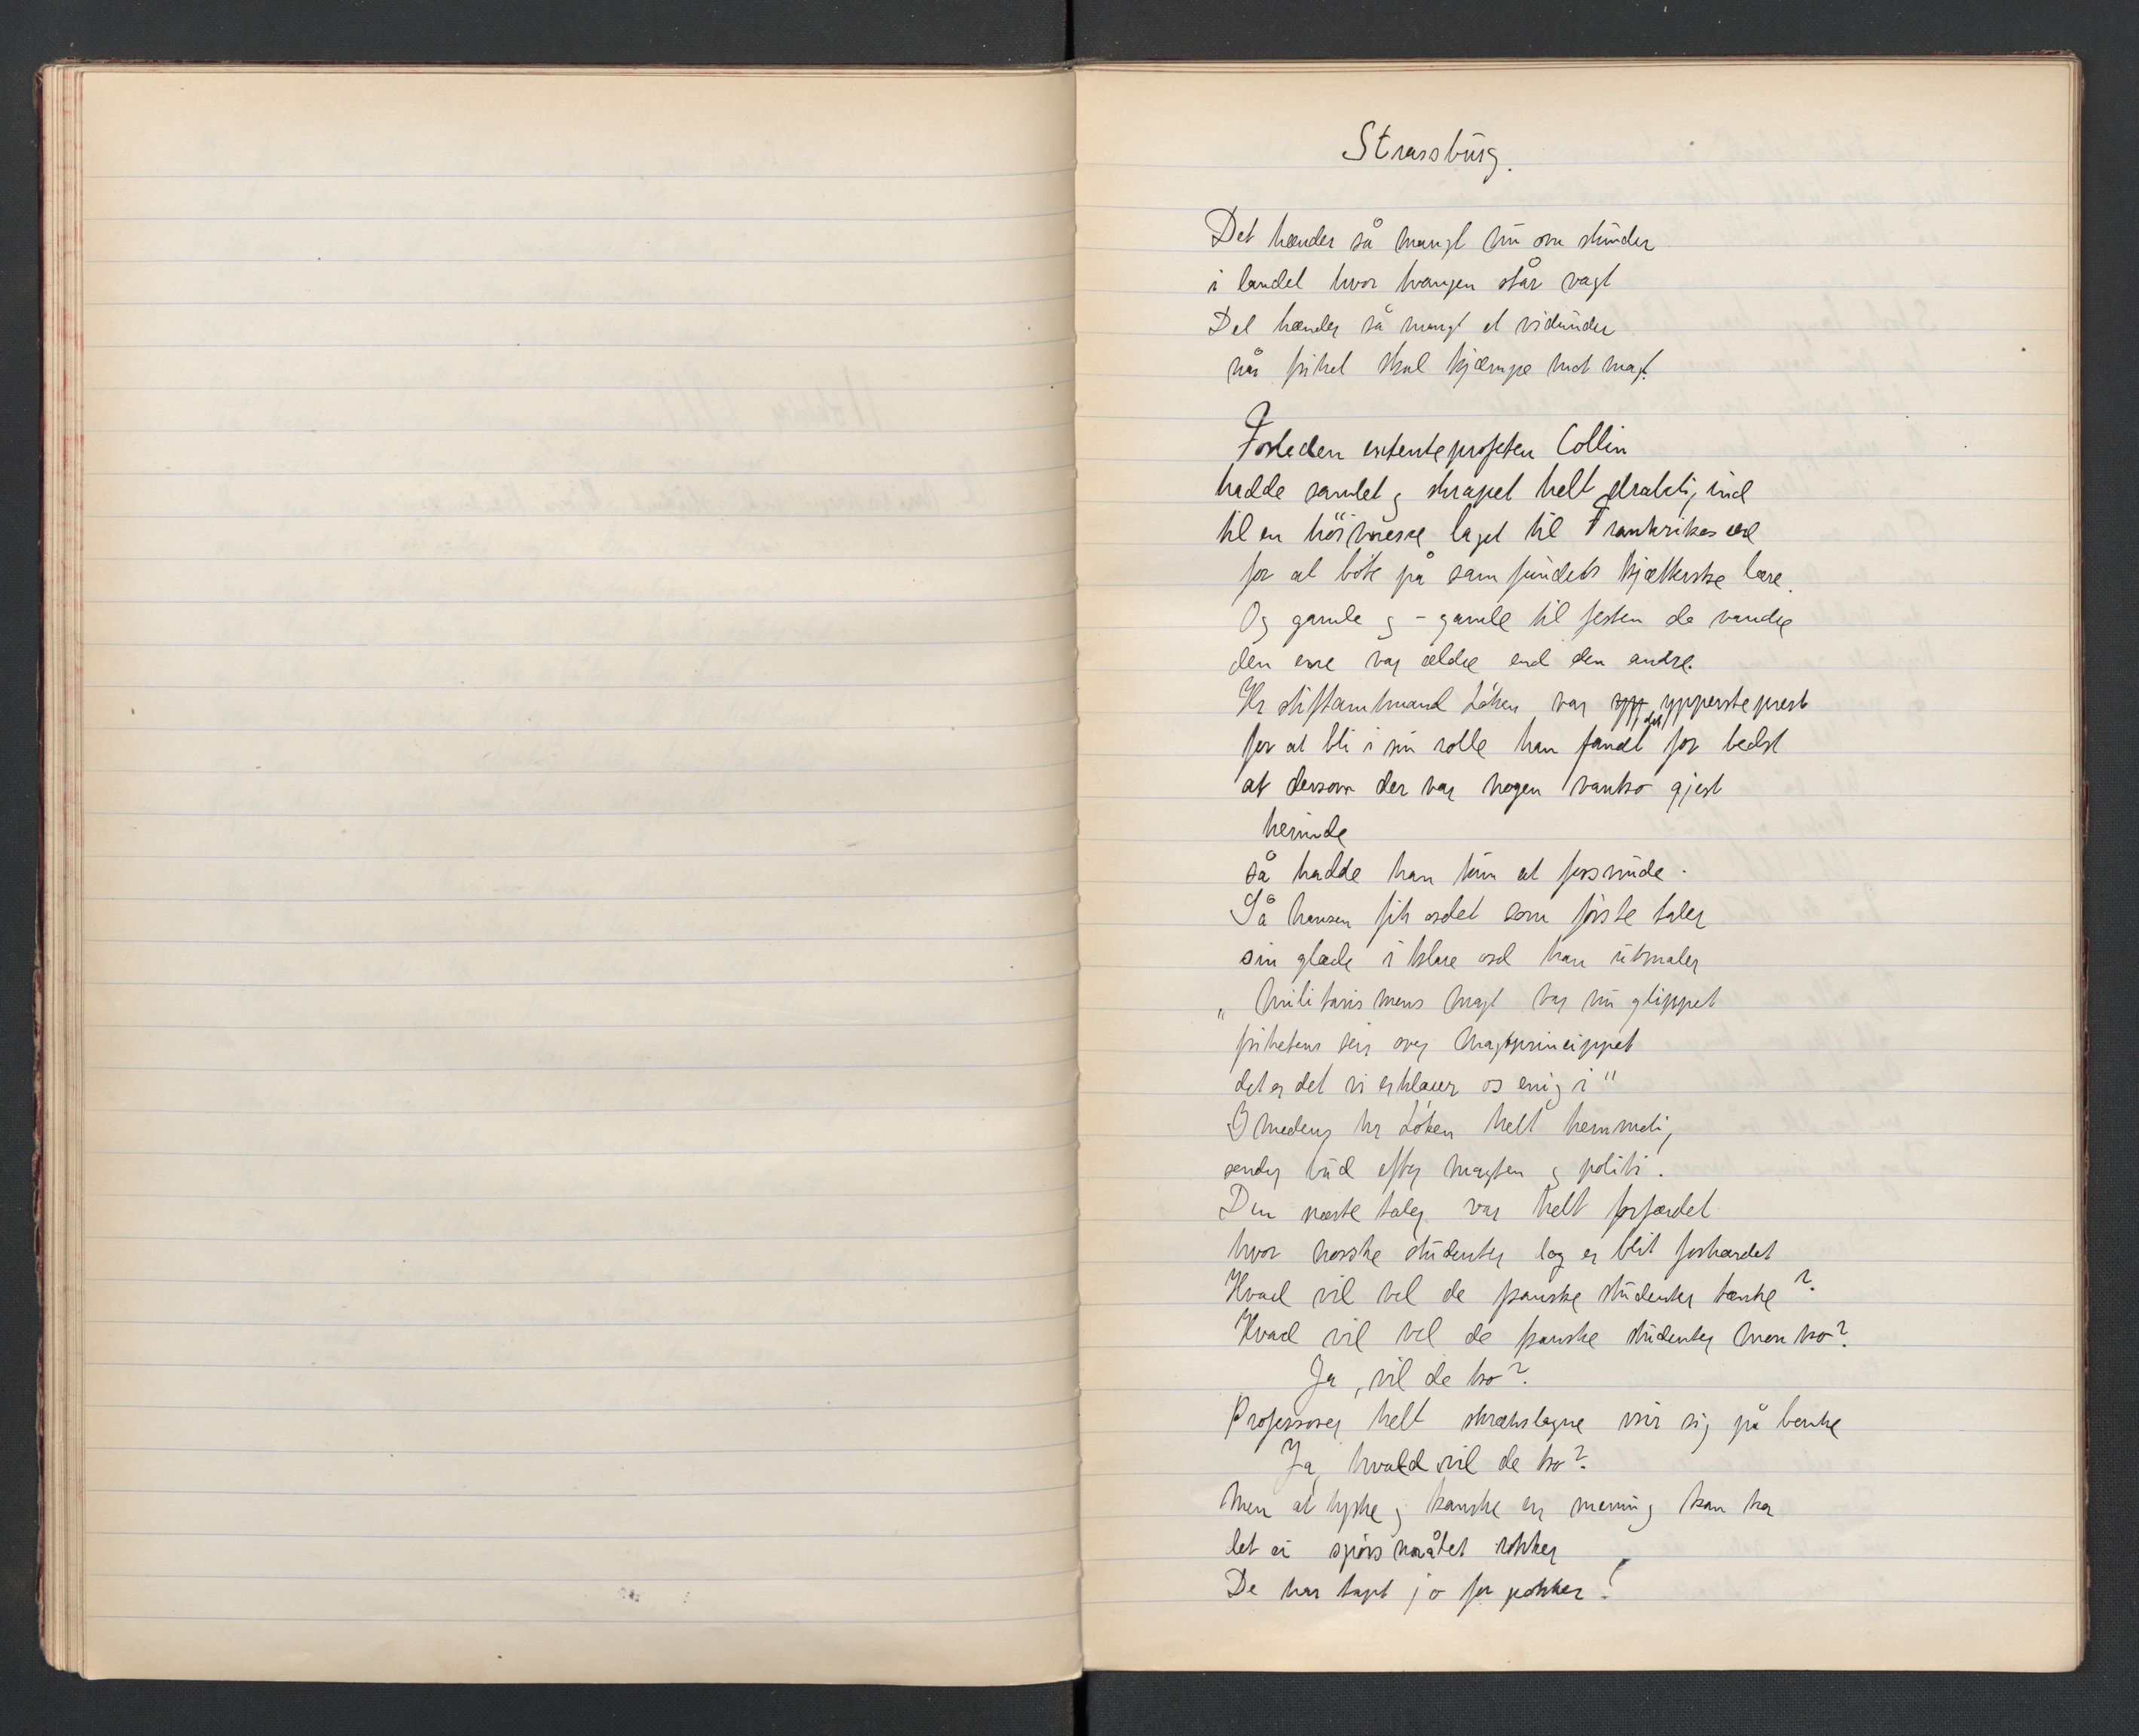 Strassburg.
Det hænder så mangt nu om stunder
i landet hvor tvangen står vagt
Det hænder så mangt et vidunder
når frihet skal kjæmpe mot magt.
Forleden ententeprofeten Collin
hadde samlet og skrapet helt straktig ind
til en höimesse laget til Frankrikes ære
for at böte på samfundets kjætterske lære.
Og gamle og - gamle til festen de vandre
den ene var ældre end den andre.
Hr stiftamtmand Löken var ypperstepræst
for at bli i sin rolle han fandt det for bedst
at dersom der var nogen vantro gjest
herinde
så hadde han kun at forsvinde.
Så hansen fik ordet som förste taler
sin glæde i klare ord han utmaler
„Militarismens magt var nu glippet
frihetens seir over magtprincippet
det er det vi erklærer os enig i"
Imedens hr Löken helt hemmelig
sender bud efter magten og politi.
Den næste taler var helt forfærdet
hvor norske studenter lag er blit forhærdet
Hvad vil vel de franske studenter tænke?
Hvad vil vel de franske studenter mon tro?
Ja, vil de tro?
Professorer helt skrækslagne vrir sig på bænke
Ja, hvad vil de tro?
Men at tyske og kanske en mening kan ha
det ei spörsmålet rokker
De har tapt jo for pokker!